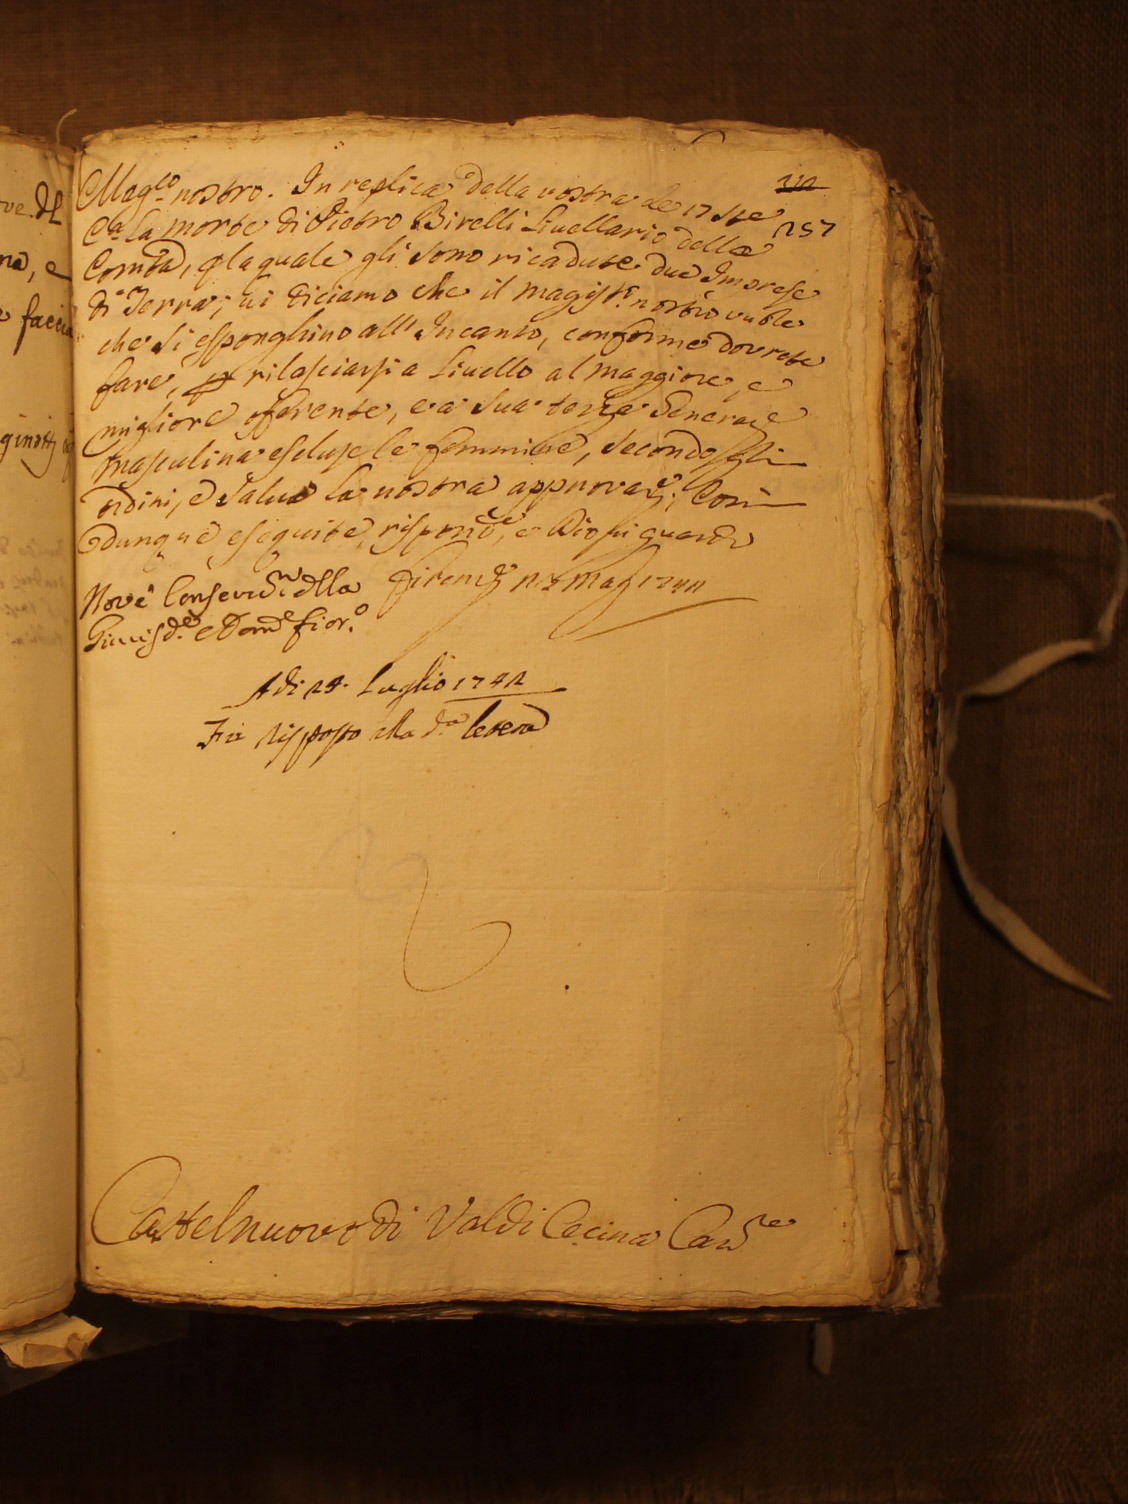 257
Mag.co nostro. In replica della vostra de 17 Ste
C.a la morte di Pietro Birelli Livellario della
Comtà, p la quale gli sono ricadute due Imprese
di Terra; vi diciamo che il magist.o nostro vuole
che si esponghino all' Incanto, conforme dovrete
fare, p rilasciarsi a Livello al maggiore, e
migliore oferente, e a sua terza Generaze
masculina escluse le femmine, secondo gli
ordini, e salva la nostra approvaz.e; Così
dunque eseguite, rispond.e, e Dio vi guardi
Nove Conserv.ri della Firenze mag 1742
Giurisd.e e Dom.e fior.o
A di 24. Luglio 1742
Fù risposto alla d.a letera
Castelnuovo di Valdi Cecina Canre
ve. Al
na, e
e faccia